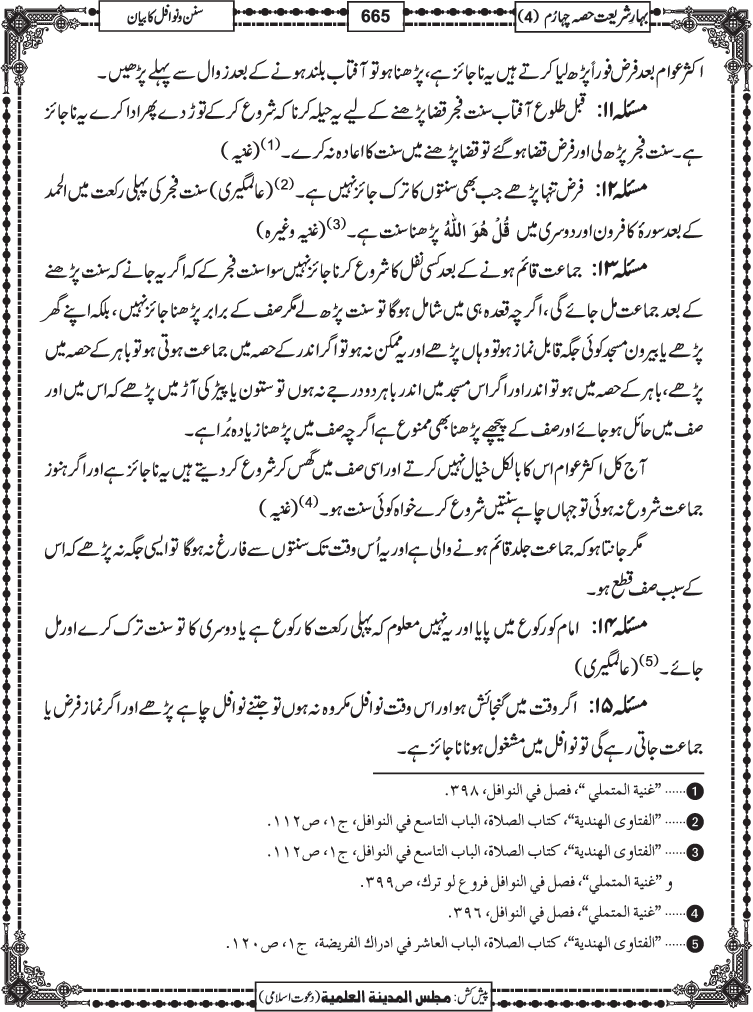 بہارِ شریعت حصہ چہارم (4)
665
سنن و نوافل کا بیان
اکثر عوام بعد فرض فوراً پڑھ لیا کرتے ہیں یہ ناجائز ہے، پڑھنا ہو تو آفتاب بلند ہونے کے بعد زوال سے پہلے پڑھیں۔
مسئلہ ۱۱: قبل طلوع آفتاب سنت فجر قضا پڑھنے کے لیے یہ حیلہ کرنا کہ شروع کر کے توڑ دے پھر ادا کرے یہ ناجائز
ہے۔ سنت فجر پڑھ لی اور فرض قضا ہو گئے تو قضا پڑھنے میں سنت کا اعادہ نہ کرے۔ (1) (غنیہ)
مسئلہ ۱۲: فرض تنہا پڑھے جب بھی سنتوں کا ترک جائز نہیں ہے۔ (2) (عالمگیری) سنت فجر کی پہلی رکعت میں الحمد
کے بعد سورۂ کافرون اور دوسری میں قُلْ هُوَ اللهُ پڑھنا سنت ہے۔ (3) (غنیہ وغیرہ)
مسئلہ ۱۳: جماعت قائم ہونے کے بعد کسی نفل کا شروع کرنا جائز نہیں سوا سنت فجر کے کہ اگر یہ جانے کہ سنت پڑھنے
کے بعد جماعت مل جائے گی، اگرچہ قعدہ ہی میں شامل ہوگا تو سنت پڑھ لے مگر صف کے برابر پڑھنا جائز نہیں، بلکہ اپنے گھر
پڑھے یا بیرون مسجد کوئی جگہ قابل نماز ہو تو وہاں پڑھے اور یہ ممکن نہ ہو تو اگر اندر کے حصہ میں جماعت ہوتی ہو تو باہر کے حصہ میں
پڑھے، باہر کے حصہ میں ہو تو اندر اور اگر اس مسجد میں اندر باہر دو درجے نہ ہوں تو ستون یا پیڑ کی آڑ میں پڑھے کہ اس میں اور
صف میں حائل ہو جائے اور صف کے پیچھے پڑھنا بھی ممنوع ہے اگرچہ صف میں پڑھنا زیادہ بُرا ہے۔
آج کل اکثر عوام اس کا بالکل خیال نہیں کرتے اور اسی صف میں گھس کر شروع کر دیتے ہیں یہ ناجائز ہے اور اگر ہنوز
جماعت شروع نہ ہوئی تو جہاں چاہے سنتیں شروع کرے خواہ کوئی سنت ہو۔ (4) (غنیہ)
مگر جانتا ہو کہ جماعت جلد قائم ہونے والی ہے اور یہ اُس وقت تک سنتوں سے فارغ نہ ہوگا تو ایسی جگہ نہ پڑھے کہ اس
کے سبب صف قطع ہو۔
مسئلہ ۱۴: امام کو رکوع میں پایا اور یہ نہیں معلوم کہ پہلی رکعت کا رکوع ہے یا دوسری کا تو سنت ترک کرے اور مل
جائے۔ (5) (عالمگیری)
مسئلہ ۱۵: اگر وقت میں گنجائش ہو اور اس وقت نوافل مکروہ نہ ہوں تو جتنے نوافل چاہے پڑھے اور اگر نماز فرض یا
جماعت جاتی رہے گی تو نوافل میں مشغول ہونا ناجائز ہے۔
1 ...... ”غنية المتملي“، فصل في النوافل، ٣٩٨.
2 ...... ”الفتاوى الهندية“، كتاب الصلاة، الباب التاسع في النوافل، ج١، ص١١٢.
3 ...... ”الفتاوى الهندية“، كتاب الصلاة، الباب التاسع في النوافل، ج١، ص١١٢.
و ”غنية المتملي“، فصل في النوافل فروع لو ترك، ص٣٩٩.
4 ...... ”غنية المتملي“، فصل في النوافل، ٣٩٦.
5 ...... ”الفتاوى الهندية“، كتاب الصلاة، الباب العاشر في ادراك الفريضة، ج١، ص١٢٠.
پیش کش: مجلس المدینة العلمیة (دعوت اسلامی)